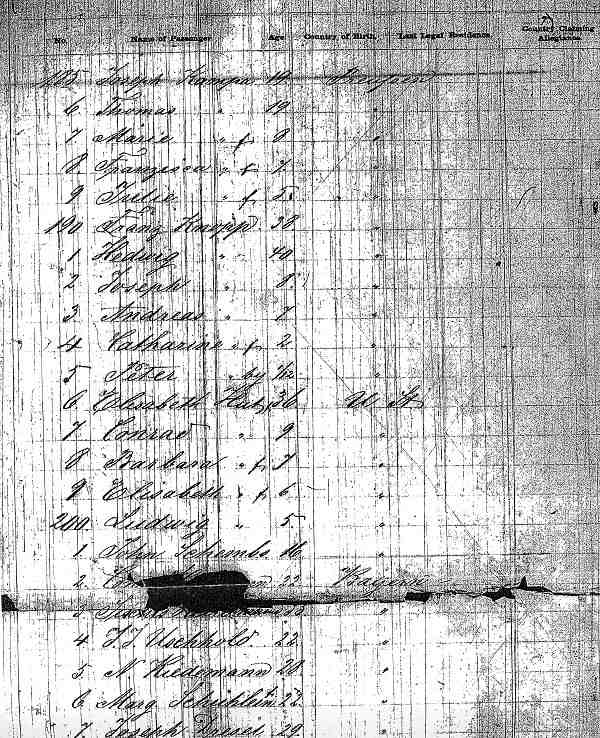 No. Name of Passenger Age Country of Birth. Last Legal Residence. Country Claiming Allegiance.
185 Joseph Kampa Preussen
6 Thomas " 19 "
7 Marie " f 8 "
8 Franzisca " f 7 "
9 Julie " f 5 "
190 Franz Knopp 38 "
1 Hedwig " 40 "
2 Joseph " 8 "
3 Andreas " 7 "
4 Catharine " f 2 "
5 Peter " by "
6 Elisabeth 36 U St
7 Conrad " 9 "
8 Barbara " f 7 "
9 Elisabeth " f 6 "
200 Ludwig " 5 "
1. John Schembs 16 "
2 22 Bayern
3 "
4. J. J. Uschhold 22 "
5. N Kiedemann 28 "
6 Marg 22 "
7. Joseph Dressel 29 "